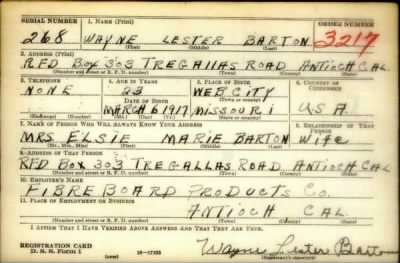 SERIAL NUMBER 1. NAME (Print) ORDER NUMBER
268 WAYNE LESTER BARTON 3217
(First) (Middle) (Last)
2. ADDRESS (Print)
RFD BOX 303 TREGALLAS ROAD ANTIOCH CAL.
(Number and street or R. F. D. number) (Town) (County) (State)
3. TELEPHONE 4. AGE IN YEARS 5. PLACE OF BIRTH 6. COUNTRY OF CITIZENSHIP
NONE 23 WEB CITY
DATE OF BIRTH
MARCH 6 1917 MISSOURI U S A.
(Exchange) (Number) (Mo.) (Day) (Yr.) (State or country)
7. NAME OF PERSON WHO WILL ALWAYS KNOW YOUR ADDRESS 8. RELATIONSHIP OF THAT PERSON
MRS. ELSIE MARIE BARTON Wife
(Mr., Mrs., Miss) (First) (Middle) (Last)
9. ADDRESS OF THAT PERSON
RFD BOX 303 TREGALLAS ROAD ANTIOCH CAL
(Number and street or R. F. D. number) (Town) (County) (State)
10. EMPLOYER'S NAME
FIBRE BOARD PRODUCTS CO.
11. PLACE OF EMPLOYMENT OR BUSINESS
ANTIOCH CAL.
(Number and street or R. F. D. number) (Town) (County) (State)
I AFFIRM THAT I HAVE VERIFIED ABOVE ANSWERS AND THAT THEY ARE TRUE.
REGISTRATION CARD
D. S. S. FORM 1 (over) 16—17105 Wayne Lester Barton
(Registrant's signature)